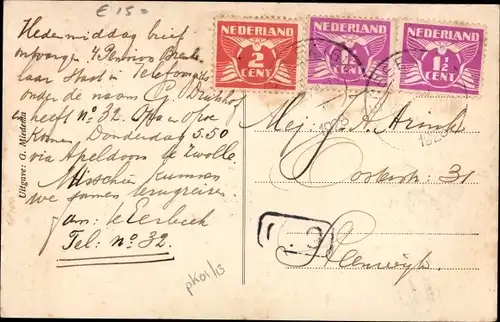 £ 150
Heden middag brief
ontvangen
laar staat in Telefoongids
onder de naam
heeft No 32. Opa en opoe
Komen Donderdag 5.50
via Apeldoorn te Zwolle.
Misschien kunnen
we samen terugreizen
Jan: te Eerbeek
Tel: no 32.
Uitgave: G. Miedema
NEDERLAND
2
CENT
NEDERLAND
1½
CENT
NEDERLAND
1½
CENT
1928
Mej. A.
31
Steenwijk
pk01/13